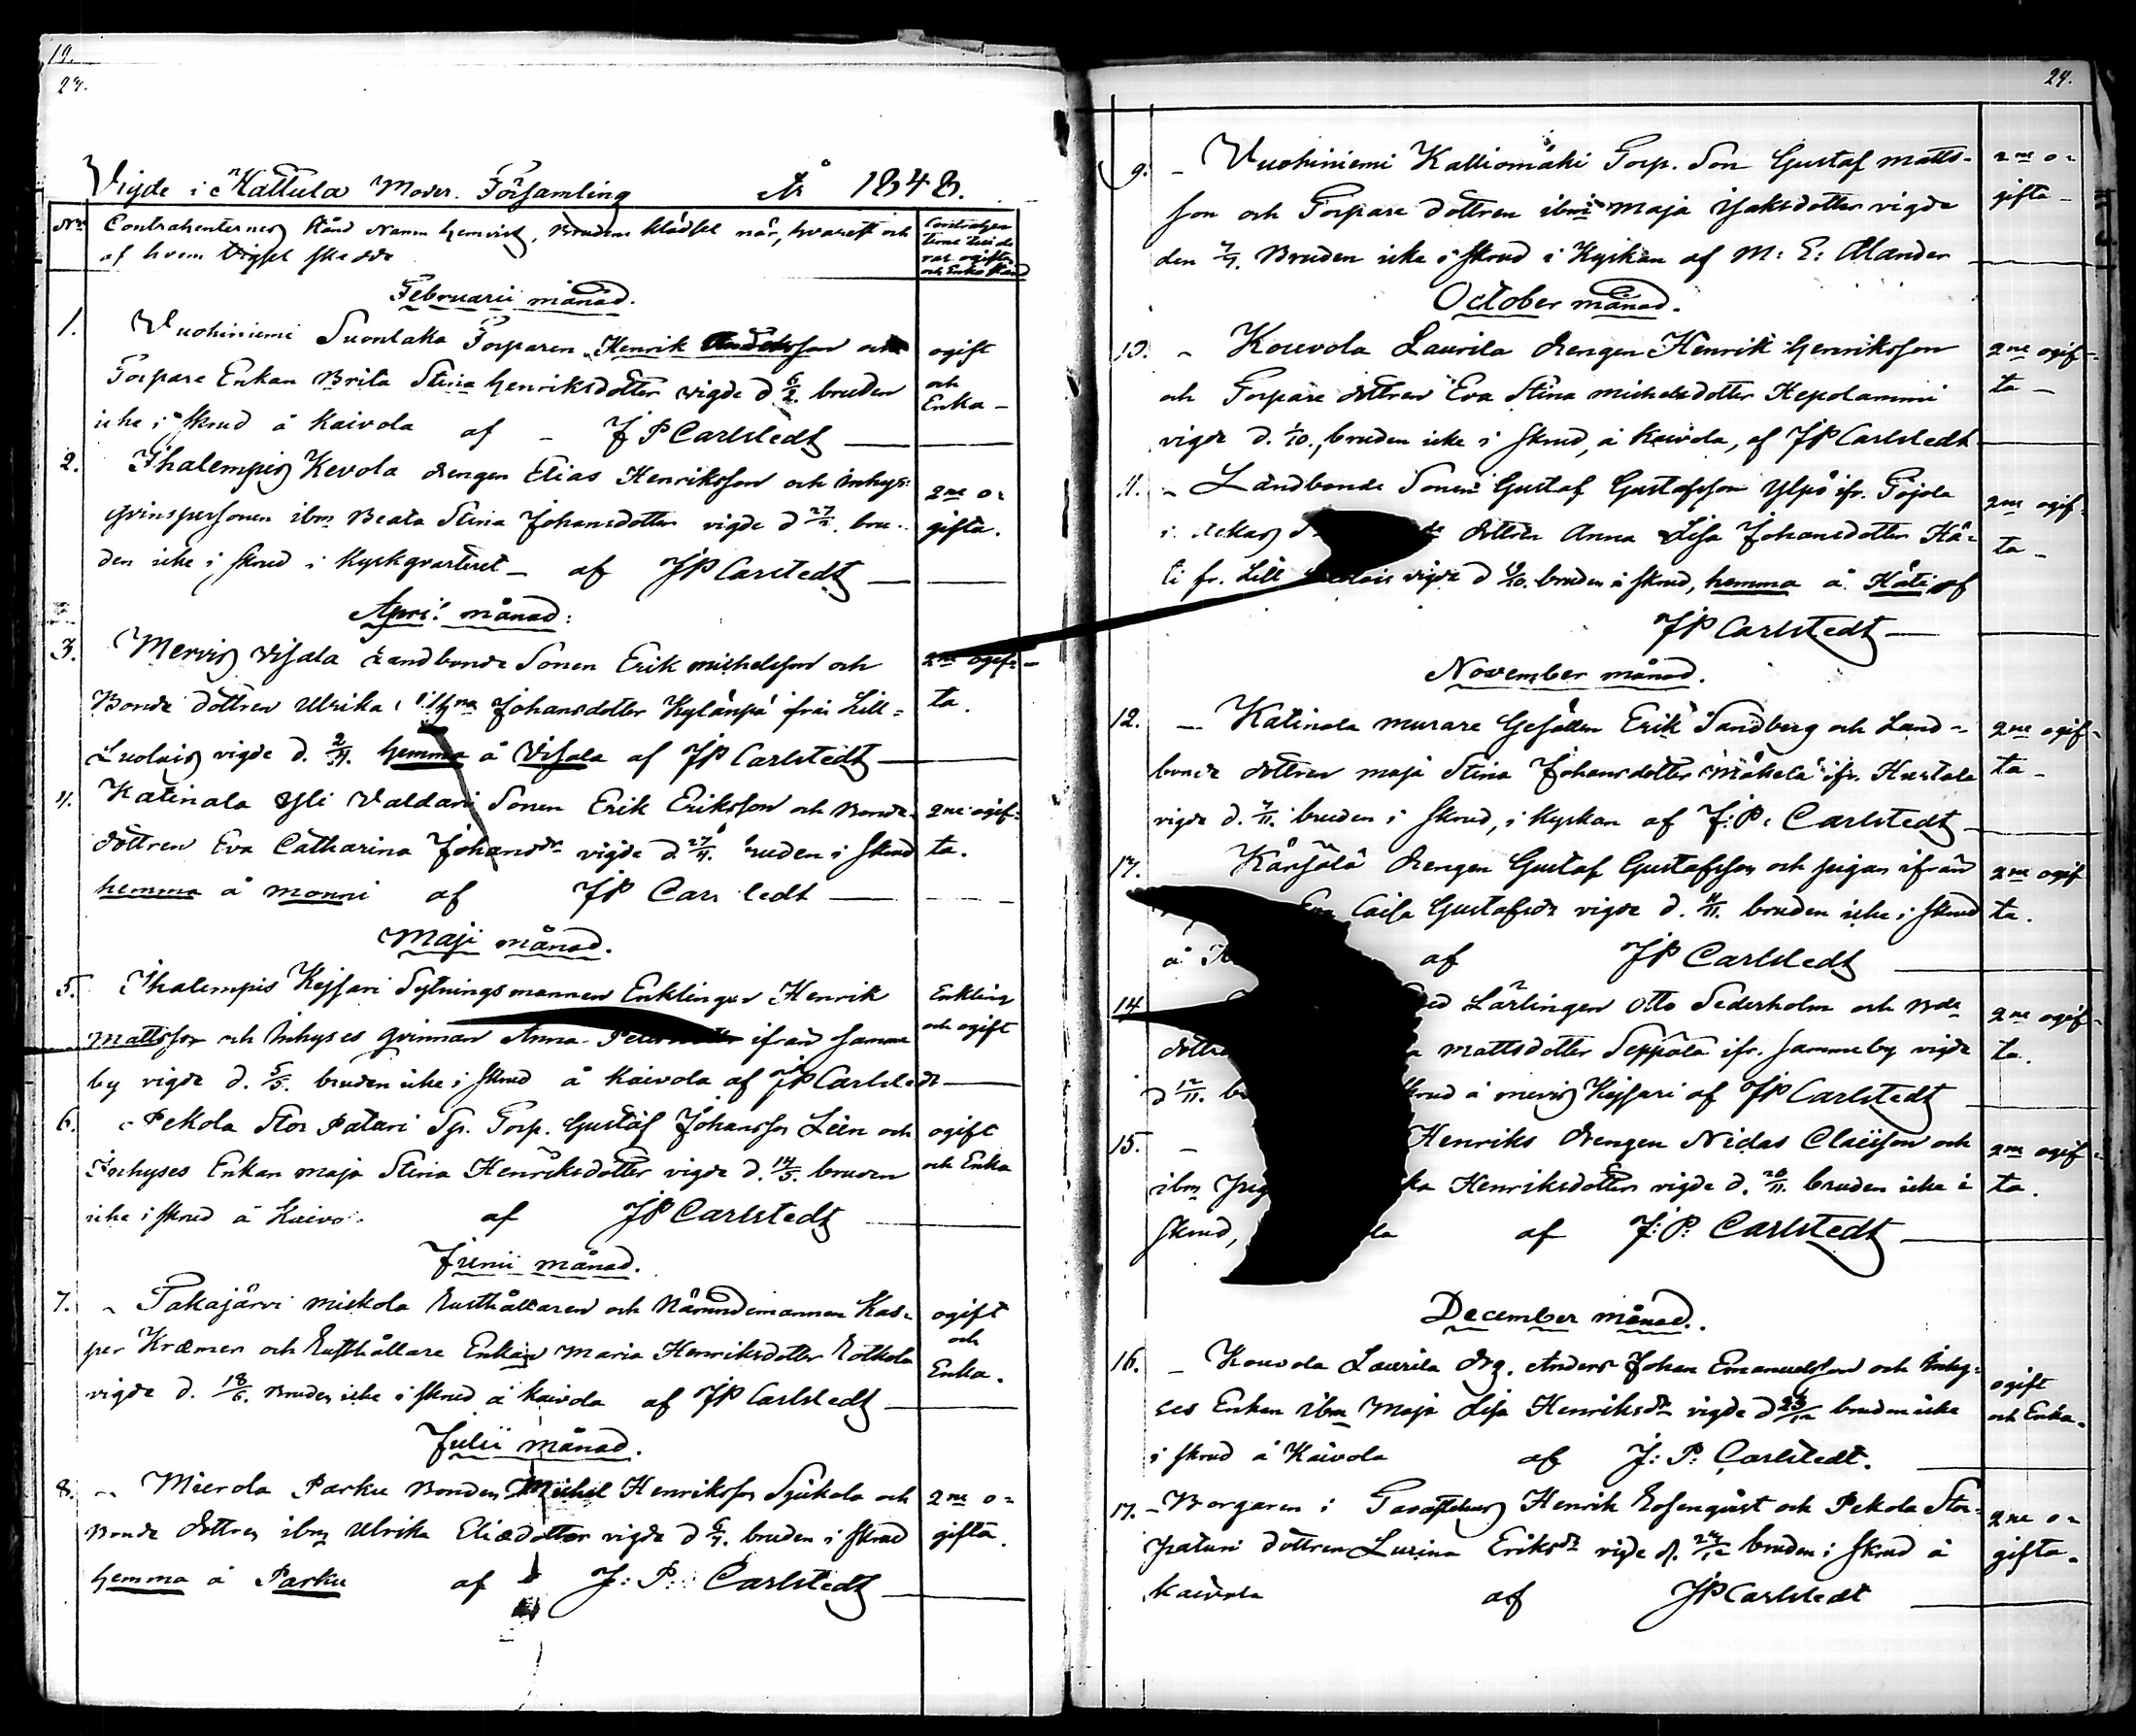 19.
23.
Vigde i Hattula Moder Församling År 1848.
No Contrahenternes Stånd Namn hemvist, Brudens klädsel när, hvarest och
af hvem Vigsel skedde
Februarii månad.
1. Vuohiniemi Suontaka Torparen Henrik och ogift
Torpare Enkan Brita Stina Henriksdotter vigde d 6/2. bruden och
Enka –
icke i skrud å Kaivola af – J P Carlstedt
2. Ihalempis Kevola drengen Elias Henriksson och Inhyses 2ne o=
qvinspersonen ibm Beata Stina Johansdotter vigde d 27/2. bru= gifta.
den icke i skrud i Kyrkqvarteret – af JP Carstedt
April månad:
3. Mervis Visala Landbonde Sonen Erik Michelsson och 2ne ogif=
Bonde dottren Ulrika Johansdotter Kylänpä ifrån Lill= ta.
Luolais vigde d. 2/4. hemma å Visala af JP Carlstedt
4. Katinala Yli Valdari Sonen Erik Eriksson och Bonde 2ne ogif=
dottren Eva Catharina Johansdr vigde d. 24/4. bruden i skrud ta.
hemma å Monni af JP Carlstedt
Maji månad.
5. Ihalempis Kejsari Sytningsmannen Enklingen Henrik Enkling
Mattsson och Inhyses qvinnan Anna ifrån samma och ogift
by vigde d. 5/5. bruden icke i skrud å Kaivola af JP Carlstedt
6. Pekola Stor Patari Sp. Torp. Gustaf Johansson Leen och ogift
Inhyses Enkan Maja Stina Henriksdotter vigde d. 14/5. bruden och Enka
icke i skrud å Kaivo af JP Carlstedt
Junii månad.
7. Takajärvi Miekola Rusthållaren och Nämndemannen Kas= ogift
per Kræmer och Rusthållare Enkan Maria Henriksdotter Eotkola och
vigde d. 18/6. Bruden icke i skrud å Kaivola af JP Carlstedt Enka.
Julii månad.
8. Mierola Parku Bonden Michel Henriksson Sjukola och 2ne o=
Bonde dottren ibm Ulrika Eliædotter vigde d 6/7. bruden i skrud gifta.
hemma å Parku af J: P: Carlstedt
24.
9. – Vuohiniemi Kalliomäki Torp. Son Gustaf Matts= 2ne o=
son och Torpare dottren ibm Maja Isaksdotter vigde gifta –
den Bruden icke i skrud i Kyrkan af M: E: Alander
October månad.
10. Kouvola Laurila drengen Henrik Henriksson 2ne ogif=
och Torpare dottren Eva Stina Michelsdotter Hepolammi ta –
vigde d. 1/10., bruden icke i skrud, å Kaivola, af JP Carlstedt
11. Landbonde Sonen Gustaf Gustafsson Ylpö ifr. Tojola 2ne ogif=
i dottren Anna Lisa Johansdotter Kä= ta –
ti fr. Lill vigde d bruden i skrud, hemma å Käti af
JP Carlstedt
November månad.
12. – Katinala murare Gesällen Erik Sandberg och Land= 2ne ogif=
bonde dottren Maja Stina Johansdotter Mäkelä ifr. Hurtala ta –
vigde d. bruden i skrud, i Kyrkan af J: P: Carlstedt
13. Kärsälä drengen Gustaf Gustafsson och pigan ifrån 2ne ogif
Eva Caisa Gustafsdr vigde d. bruden icke i skrud ta.
å af JP Carlstedt
14 Lärlingen Otto Sederholm och Bde 2ne ogif=
dottre Mattsdotter Seppälä ifr. samma by vigde ta.
d 12/11. å Mervis Kejsari af JP Carlstedt
15. – Henriks drengen Nidas Claësson och 2ne ogif=
ibm Henriksdotter vigde d. 26/11. bruden icke i ta.
skrud, af J: P: Carlstedt
December månad.
16. – Kouvola Laurila drg. Anders Johan Emanuelsson och Inhy= ogift
ses Enkan ibm Maja Lisa Henriksdr vigde d 23/12 bruden icke och Enka.
i skrud å Kaivola af J: P: Carlstedt.
17. – Borgaren i Tavastehus Henrik Rosenqvist och Pekola Stor= 2ne o=
patari dottren Lurina Eriksdr vigde d. bruden i skrud å gifta.
Kaivola af JP Carlstedt